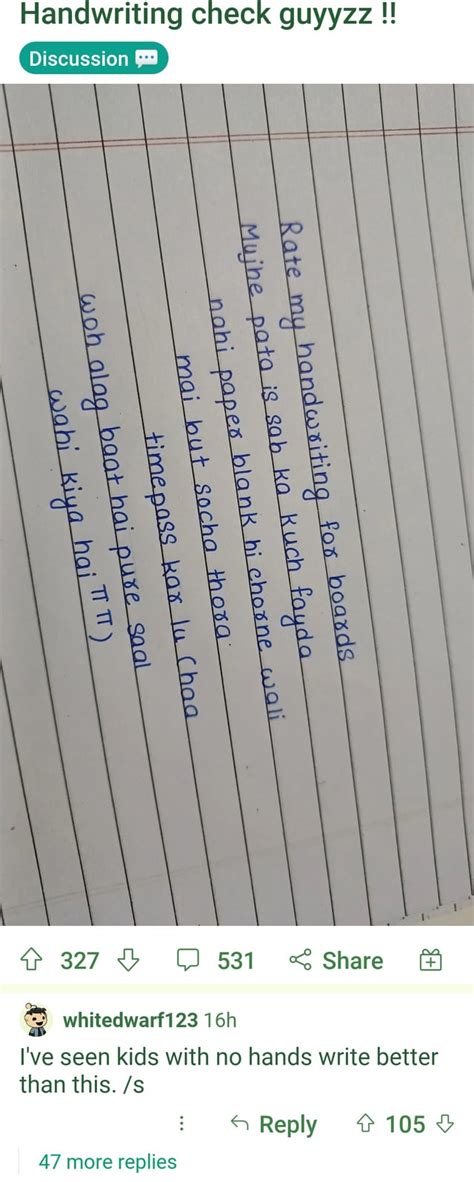 Handwriting check guyyzz !!
Discussion
Rate my handwriting for boards
Mujhe pata is sab ka kuch fayda
nahi paper blank hi chorne wali
mai but socha thora
timepass kar lu (haa
woh alag baat hai pure saal
wahi kiya hai ㅠㅠ)
327
531
Share
whitedwarf123 16h
I've seen kids with no hands write better
than this. /s
Reply
105
47 more replies